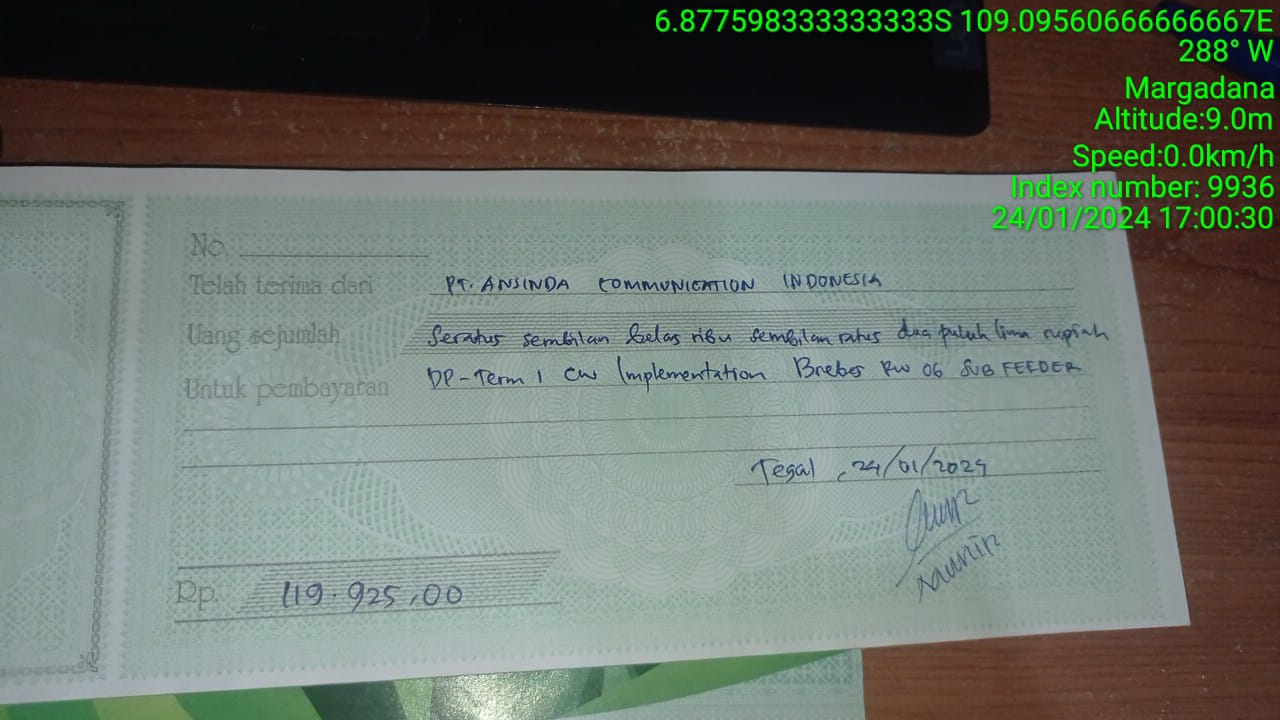 6.877598333333333S 109.09560666666667E
288° W
Margadana
Altitude:9.0m
Speed:0.0km/h
Index number: 9936
24/01/2024 17:00:30
No.
Telah terima dari PT. ANSINDA COMMUNICATION INDONESIA
Uang sejumlah Seratus sembilan belas ribu sembilan ratus dua puluh lima rupiah
Untuk pembayaran DP-Term 1 CW Implementation Brebes RW 06 SUB FEEDER
Tegal, 24/01/2024
Rp. 119.925,00